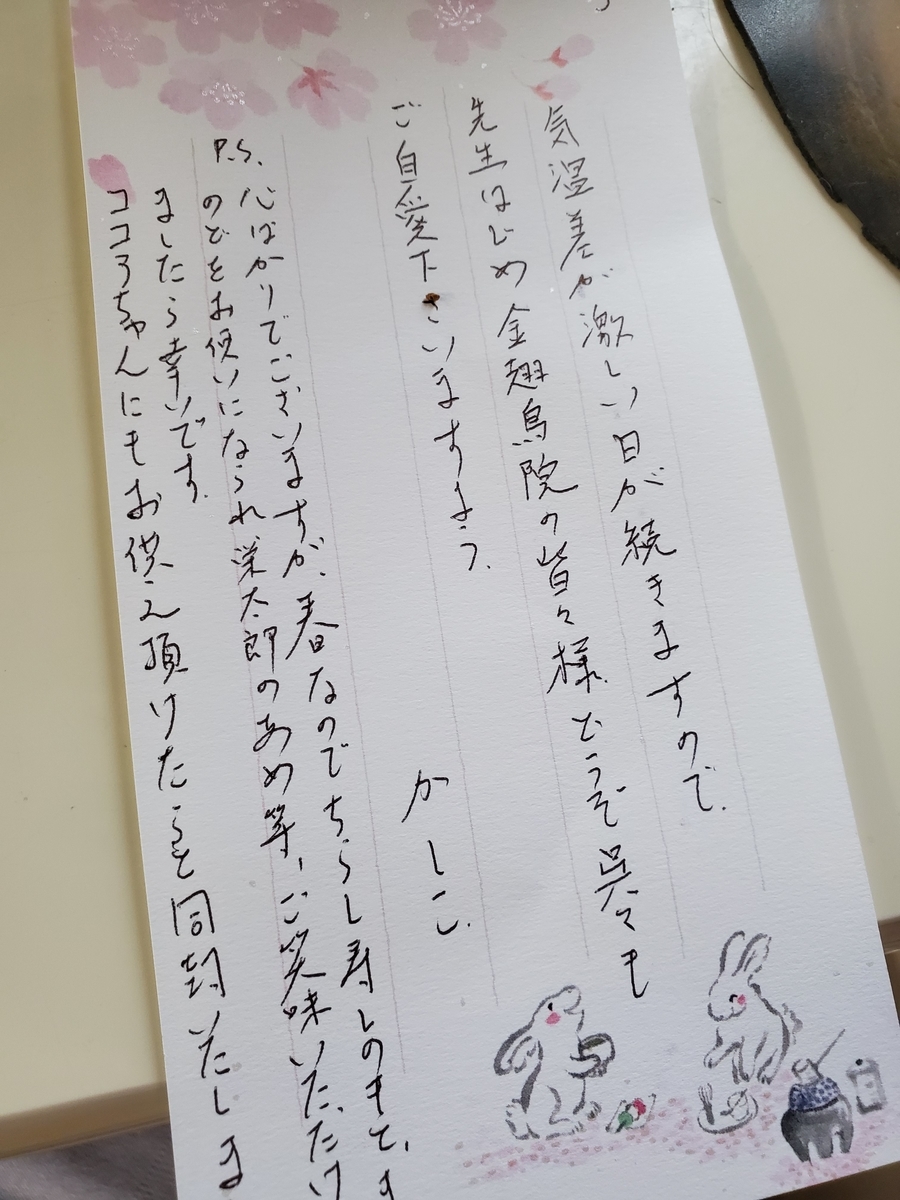 気温差が激しい日が続きますので、
先生はじめ金翅鳥院の皆々様どうぞ呉々も
ご自愛下さいますよう、
かしこ、
P.S. 心ばかりでございますが、春なのでちらし寿しのもと、
のどをお使いになられ栄太郎のあめ等、ご笑味いただけ
ましたら幸いです。
ココろちゃんにもお供え頂けたらと同封いたしま